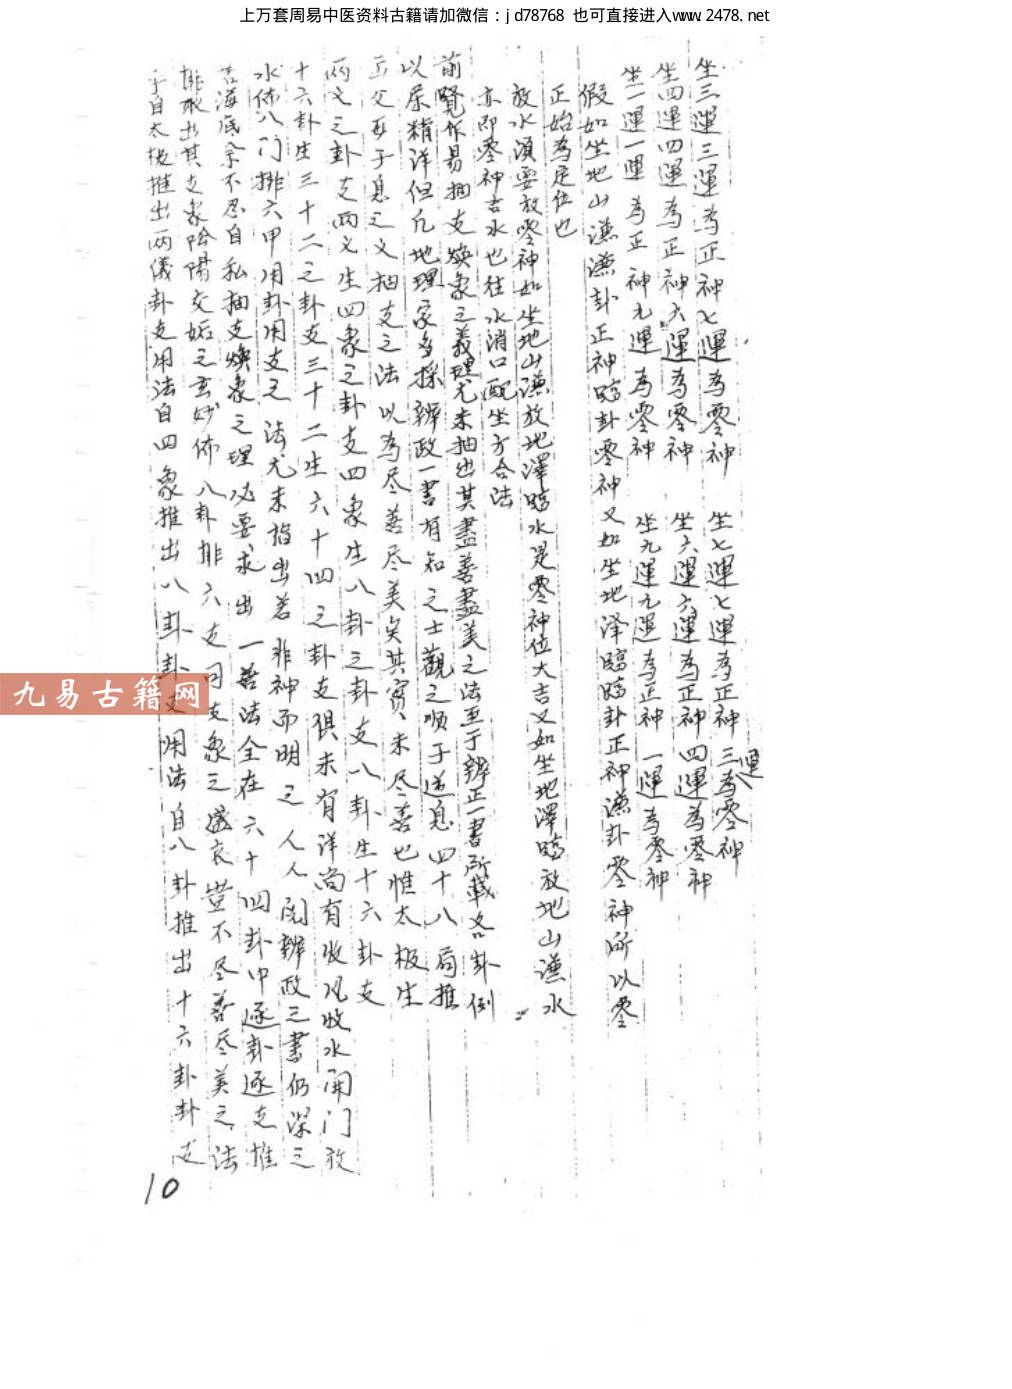 上万套周易中医资料古籍请加微信：jd78768 也可直接进入www.2478.net
坐三運三運為正神七運為零神 坐七運七運為正神三運為零神
坐四運四運為正神六運為零神 坐六運六運為正神四運為零神
坐一運一運為正神九運為零神 坐九運九運為正神一運為零神
假如坐地山谦谦卦正神臨卦零神又如坐地泽臨臨卦正神谦卦零神所以零
正始為定位也
放水須要放零神如坐地山谦放地澤臨水是零神位大吉又如坐地澤臨放地山谦水
亦即零神吉水也往水消口配坐方合法
前賢作易抽支煥象之義理尤未抽出其盡善盡美之法至于辨正一書所載各卦例
以尽精详但凡地理家多採辨政一書有知之士觀之顺于送息四十八局推
父母子息之义抽支之法以為尽善尽美矣其实未尽善也惟太极生
两义之卦支两义生四象之卦支四象生八卦之卦支八卦生十六卦支
十六卦生三十二之卦支三十二生六十四之卦支俱未有详尚有收水開门放
水佈八门排六甲用卦用支之法尤未指出若非神而明之人人阅辨政之書仍深之
苦海底余不忍自私抽支煥象之理必要求出一善法全在六十四卦中逐卦逐支推
排取出其支象阴陽交姤之玄妙佈八卦排六支同支象之盛衰豈不尽善尽美之法
乎自太极推出两儀卦支用法自四象推出八卦卦支用法自八卦推出十六卦卦支
10
九易古籍网